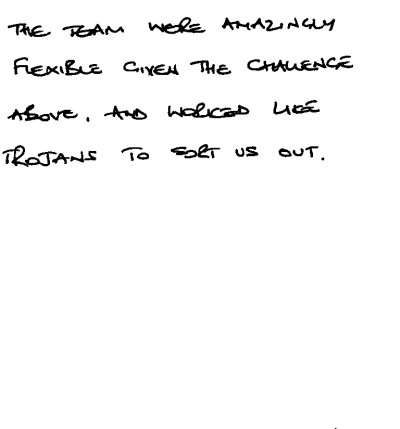 THE TEAM WERE AMAZINGLY
FLEXIBLE GIVEN THE CHALLENGE
ABOVE, AND WORKED LIKE
TROJANS TO SORT US OUT.